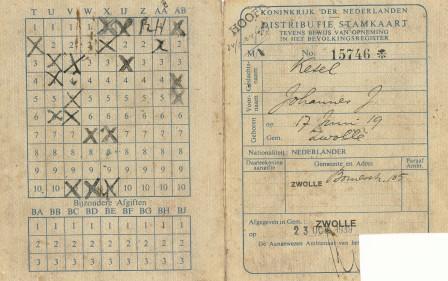 T U V W X IJ Z AA AB
1 1 1 1 1 R2H 1
2 2 2 2 2 2 2 2
3 3 3 3 3 3 3
4 4 4 4 4 4 4 4 4
5 5 5 5 5 5 5 5
6 6 6 6 6 6 6
7 7 7 7 7 7 7
8 8 8 8 8 8 8 8 8
9 9 9 9 9 9 9 9 9
10 10 10 10 10 10
Bijzondere Afgiften
BA BB BC BD BE BF BG BH BJ
1 1 1 1 1 1 1 1 1
2 2 2 2 2 2 2 2 2
3 3 3 3 3 3 3 3 3
HOOF
KONINKRIJK DER NEDERLANDEN
DISTRIBUTIE STAMKAART
TEVENS BEWIJS VAN OPNEMING
IN HET BEVOLKINGSREGISTER
M No. 15746 *
Geslachtsnaam Kesel
Voornaam Johannes J
Geboren op 17 Juni 19
Gem. Zwolle
Nationaliteit: NEDERLANDER
Dagteekening aangifte Gemeente en Adres Paraaf Ambt.
ZWOLLE 105
Afgegeven in Gem.: ZWOLLE
op 23 OCT 1939
De Aangewezen Ambtenaar van het